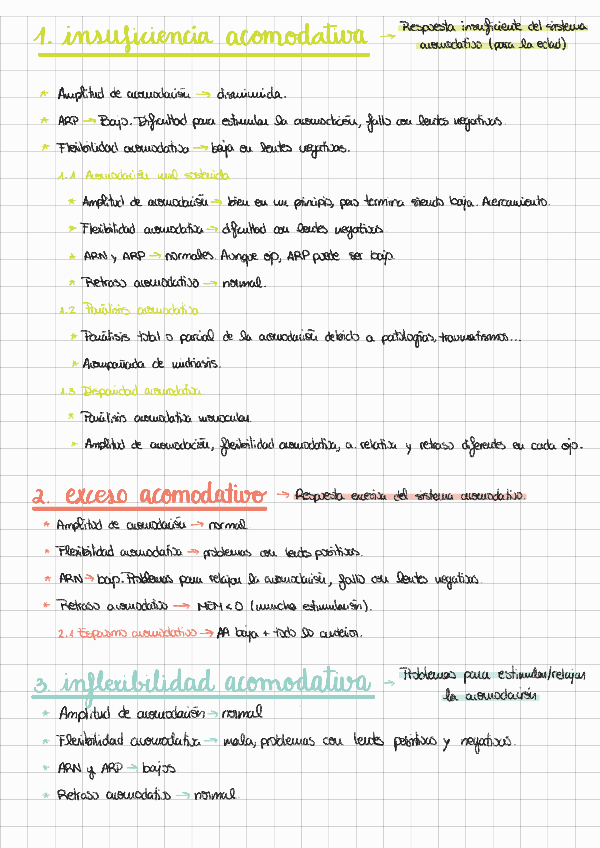 1. insuficiencia acomodativa → Respuesta insuficiente del sistema
acomodativo (para la edad)
* Amplitud de acomodación → disminuida.
* ARP → Bajo. Dificultad para estimular la acomodación, fallo con lentes negativas.
* Flexibilidad acomodativa → baja en lentes negativas.
1.1 Acomodación mal sostenida
* Amplitud de acomodación → bien en un principio, pero termina siendo baja. Acercamiento.
* Flexibilidad acomodativa → dificultad con lentes negativas.
* ARN y ARP → normales. Aunque ojo, ARP puede ser bajo.
* Retraso acomodativo → normal.
1.2 Parálisis acomodativa
* Parálisis total o parcial de la acomodación debido a patologías, traumatismos...
* Acompañada de midriasis.
1.3 Disparidad acomodativa
* Parálisis acomodativa monocular.
* Amplitud de acomodación, flexibilidad acomodativa, a. relativa y retraso diferentes en cada ojo.
2. exceso acomodativo → Respuesta excesiva del sistema acomodativo.
* Amplitud de acomodación → normal
* Flexibilidad acomodativa → problemas con lentes positivas.
* ARN → bajo. Problemas para relajar la acomodación, fallo con lentes negativas.
* Retraso acomodativo → MEM < 0 (mucha estimulación).
2.1 Espasmo acomodativo → AA baja + todo lo anterior.
3. inflexibilidad acomodativa → Problemas para estimular/relajar
la acomodación
* Amplitud de acomodación → normal
* Flexibilidad acomodativa → mala, problemas con lentes positivas y negativas.
* ARN y ARP → bajos
* Retraso acomodativo → normal.